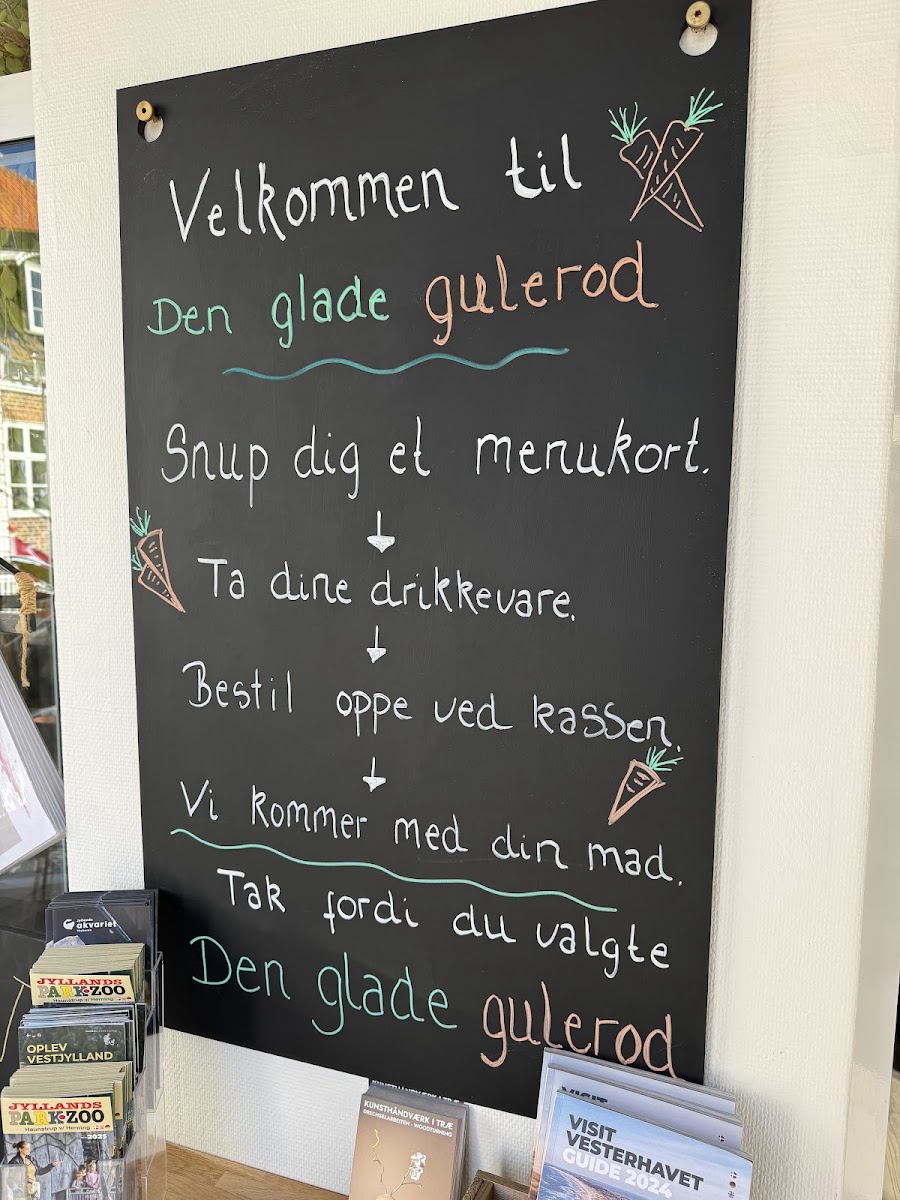 Velkommen til
Den glade gulerod
Snup dig et menukort.
Ta dine drikkevare.
Bestil oppe ved kassen.
Vi kommer med din mad.
Tak fordi du valgte
Den glade gulerod
akvariet
JYLLANDS
PARK ZOO
Haunstrup v/ Herning
OPLEV
VESTJYLLAND
JYLLANDS
PARK ZOO
Haunstrup v/ Herning
2025
KUNSTHÅNDVÆRK I TRÆ
DRECHSELARBEITEN - WOODTURNING
VISIT
VISIT
VESTERHAVET
GUIDE 2024